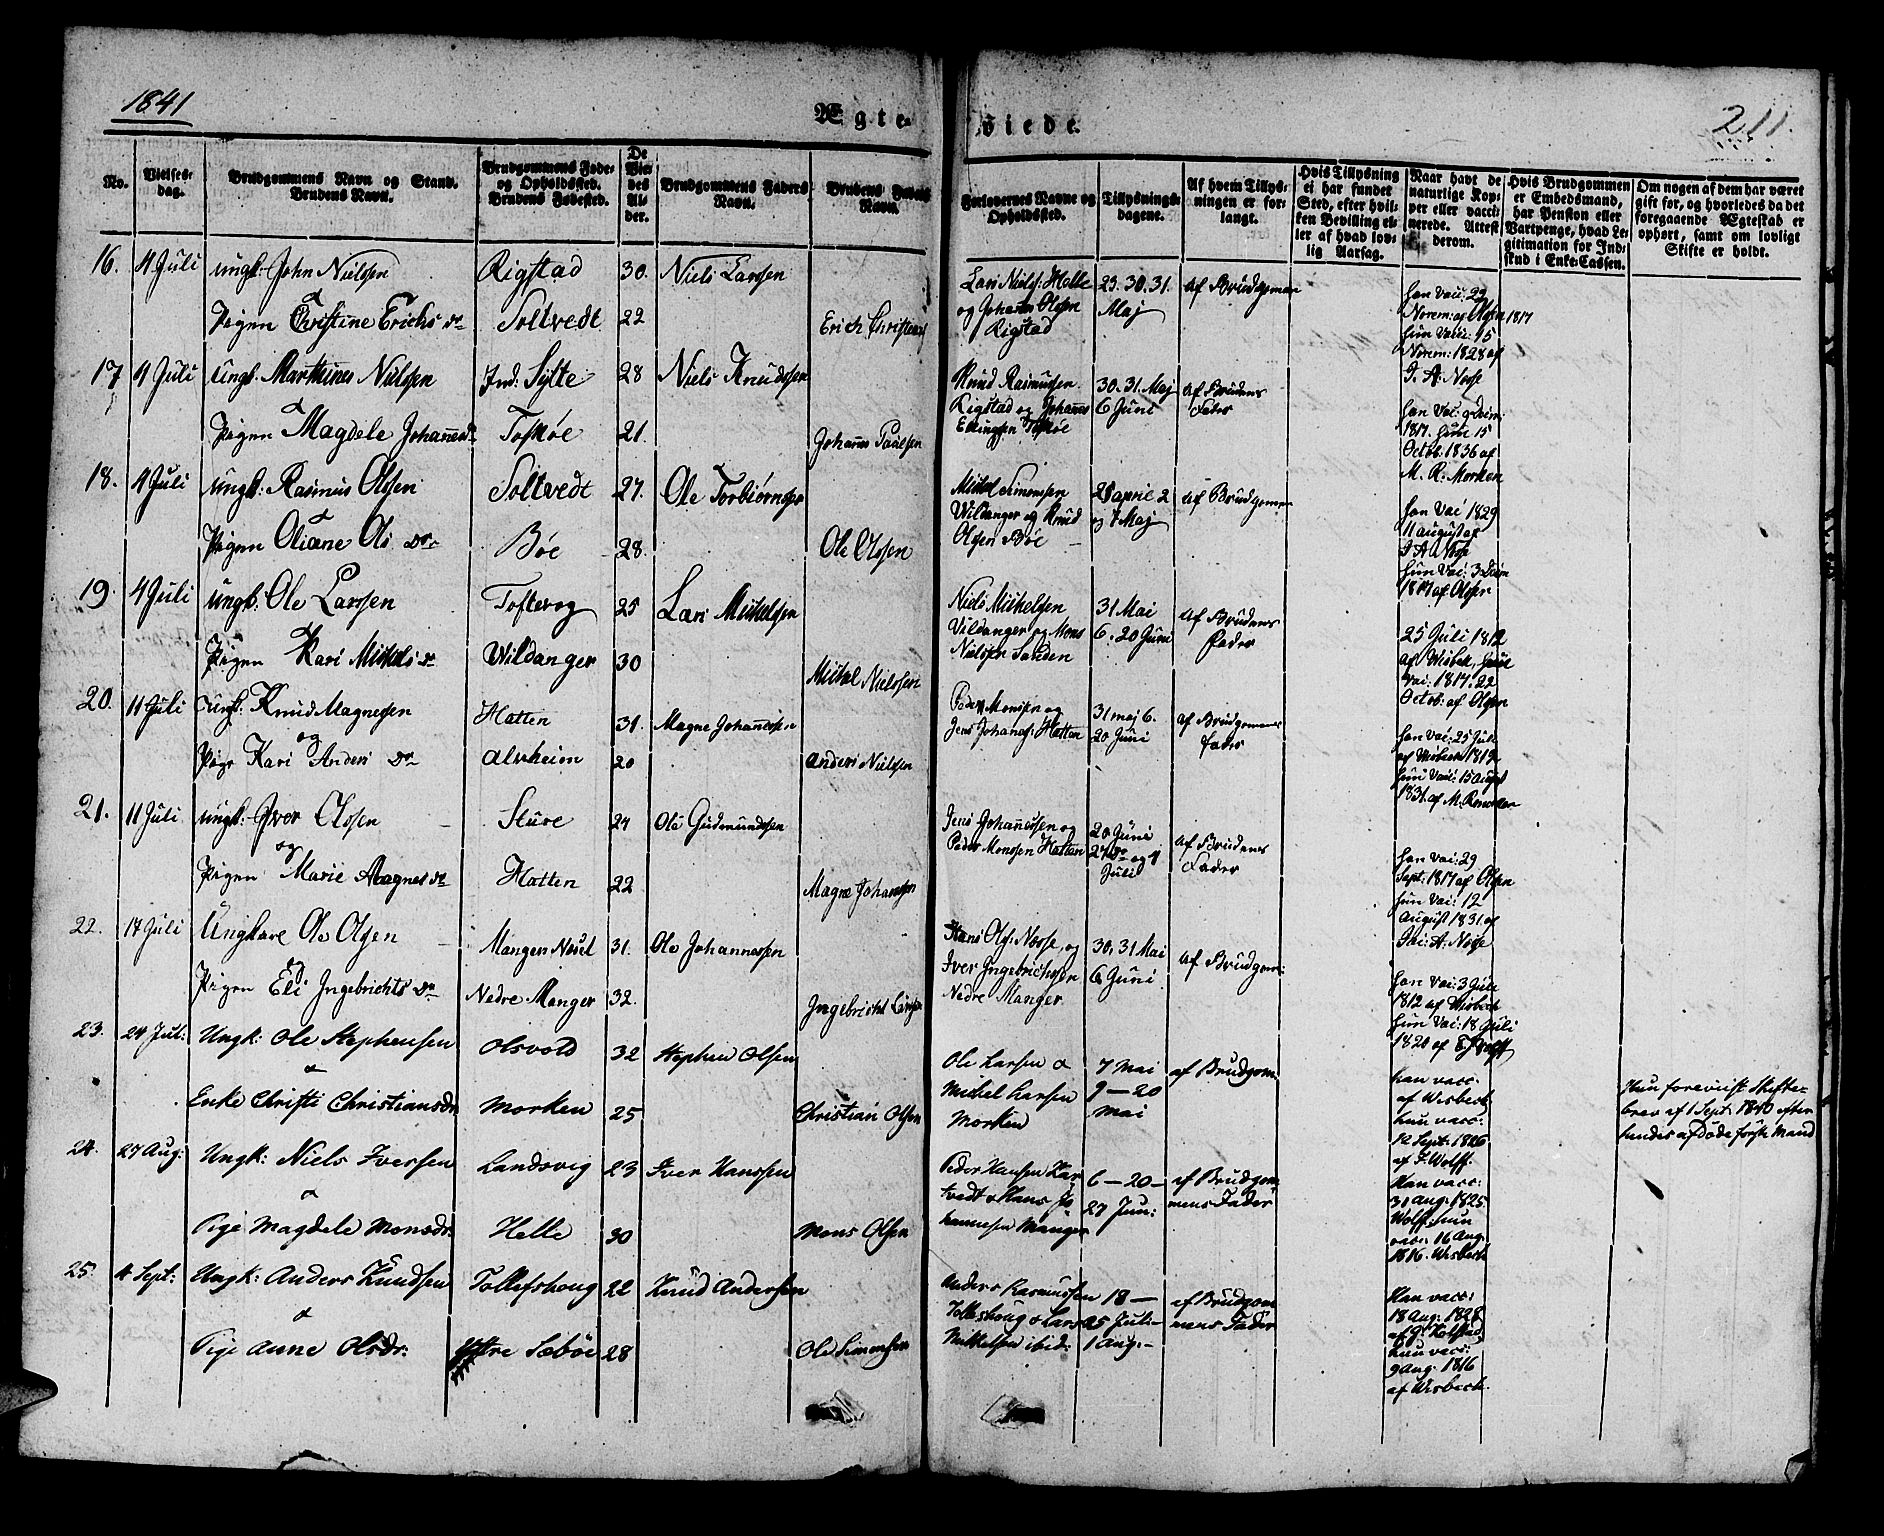 1841
Ægte-
viede.
211.
No.
Vielses-
dag.
Brudgommens Navn og Stand.
Brudens Navn.
Brudgommens Føde-
og Opholdssted.
Brudens Fødested.
De
Vie-
des
Al-
der.
Brudgommens Faders
Navn.
Brudens Faders
Navn.
Forlovernes Navne og
Opholdssted.
Tillysnings-
dagene.
Af hvem Tillys-
ningen er for-
langt.
Hvis Tillysning
ei har fundet
Sted, efter hvil-
ken Bevilling el-
ler af hvad lov-
lig Aarsag.
Naar havt de
naturlige Kop-
per eller vacci-
nerede. Attest
derom.
Hvis Brudgommen
er Embedsmand,
har Pension eller
Vartpenge, hvad Le-
gitimation for Ind-
skud i Enke-Cassen.
Om nogen af dem har været
gift før, og hvorledes da det
foregaaende Ægteskab er
ophørt, samt om lovligt
Skifte er holdt.
16. 4 Juli ungk: John Nielssen Rigstad 30. Niels Larssen
Lars Niels: Helle 23. 30. 31. af Brudgomen
og Johann Olsen Maj
Rigstad
Pigen Christine Erichs Dr Soltvedt 22 Erich Christians
han vac: 22
Novem: af Olsen 1817
hun vac: 15
Novem: 1828 af
J. A. Nosse
17 4 Juli Ungk. Marthines Nielssen Ind: Sylte 28 Niels Knudssen
Knud Rasmussen 30. 31. Maj af Brudens
Rigstad og Johannes 6 Juni Fader
Ellingsen Toskøe
og
Pigen Magdele Johannesd Toskøe 21. Johans Paulsen
han vac: 9 Decem:
1817. hun 15
Octob: 1836 af
M. R. Morken
18. 4 Juli ungk: Rasmus Olssen Soltvedt 27. Ole Torbiørnsen
Mikkel Simonsen 25 april 2 af Brudgomen
Wildanger og Knud og 7 Maj
Olsen Bøe
og
Pigen Oliane Ols Dr Bøe 28. Ole Olssen
han vac 1829
11 august af
J A Nosse
hun vac: 3 Decem
1817 af Olsen
19. 4 Juli ungk: Ole Larssen Toftevog 25 Lars Mikkelsen
Niels Mikkelsen 31 Mai af Brudens
Vildanger og Mons 6. 20 Juni Fader
Nielsen Sanden
Pigen Kari Mikkels Dr Wildanger 30 Mikkel Nielssen
25 Juli 1812
af Wisbek, hun
vac: 1817. 22
Octob: af Olsen
20. 11 Juli Ungk. Knud Magnessen Hatten 31. Magne Johannessen
Peder Monsen og 31 maj 6. af Brudgomens
Jens Johanes: Hatten 20 Juni Fader
og
Pige Kari Anders Dr Alvheim 20 Anders Nielsen
han vac: 25 Juli
af Wisbech 1812
hun vac: 15 August
1831. af M. R. Morken
21. 11 Juli ungk: Iver Olssen Sture 24 Ole Gudmundssen
Jens Johannessen og 20 Juni af Brudens
Peder Monssen Hatten 27 Do og 4 Fader
Juli
og
Pigen Marie Magnes Dr Hatten 22 Magne Johansen
han vac: 29
Sept: 1817 af Olsen
hun vac: 12
August 1831. af
J. A. Nosse
22. 17 Juli Ungkare Ole Olsen Manger Nesset 31. Ole Johannessen
Hans Ols: Nosse, og 30, 31 Mai af Brudgom:
Iver Ingebrichssen 6 Juni
Nedre Manger
og
Pigen Eli Ingebrichts Dr Nedre Manger 32. Ingebricht Larsen
han vac: 3 Juli
1812 af Wisbech
hun vac: 18 Juli
1820 af F. Wolff
23. 24 Jul: Ungk: Ole Stephensen Olsvold 32 Stephen Olsen
Ole Larsen & 7 Mai af Brudgom
Michel Larsen 9 — 20
Morken Mai
&
Enke Christi Christiansdr Morken 25 Christian Olsen
han vacc:
af Wisbech
hun vacc:
12 Sept: 1816
af F. Wolff:
Hun foreviist Skifte-
brev af 1 Sept: 1840 efter
hendes afdøde første Mand
24. 27 Aug: Ungk: Niels Iverssen Landsvig 23 Iver Hanssen
Peder Hansen Har- 6 — 20 — af Brudgom
tvedt & Hans Jo 27 Jun: mens Fader
hannesen Manger
&
Pige Magdele Monsdr. Helle 30 Mons Olsen
Han vacc:
31 Aug: 1825.
Wolff: hun
vacc: 16 Aug.
1816. Wisbech
25. 4 Sept: Ungk: Anders Knudsen Tollefshoug 22 Knud Andersen
Anders Rasmussen 18 — af Brudgom
Tollefshoug & Lars 25 Juli — mens Fader
Mikkelsen ibid: 1 Aug. —
&
Pige Anne Olsdr: Ystre Sæbøe 28 Ole Simonsen
Han vacc:
18 Aug: 1828
af G Holstad
hun vacc:
9 Aug: 1816
af Wisbech.